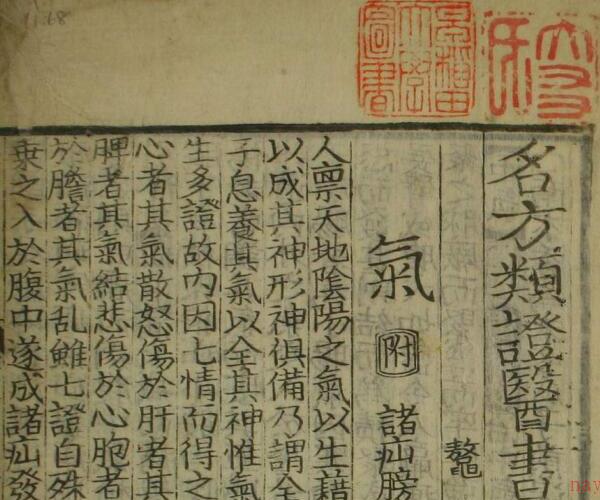 早稲田大學圖書
名方類證醫書
鼇
氣 附 諸疝膀
人禀天地陰陽之氣以生藉
以成其神形神俱備乃謂全
子息養其氣以全其神惟氣
生多證故内因七情而得之
心者其氣散怒傷於肝者其
脾者其氣結悲傷於心胞者
於膽者其氣乱雖七證自殊
乗之入於腹中遂成諸疝發